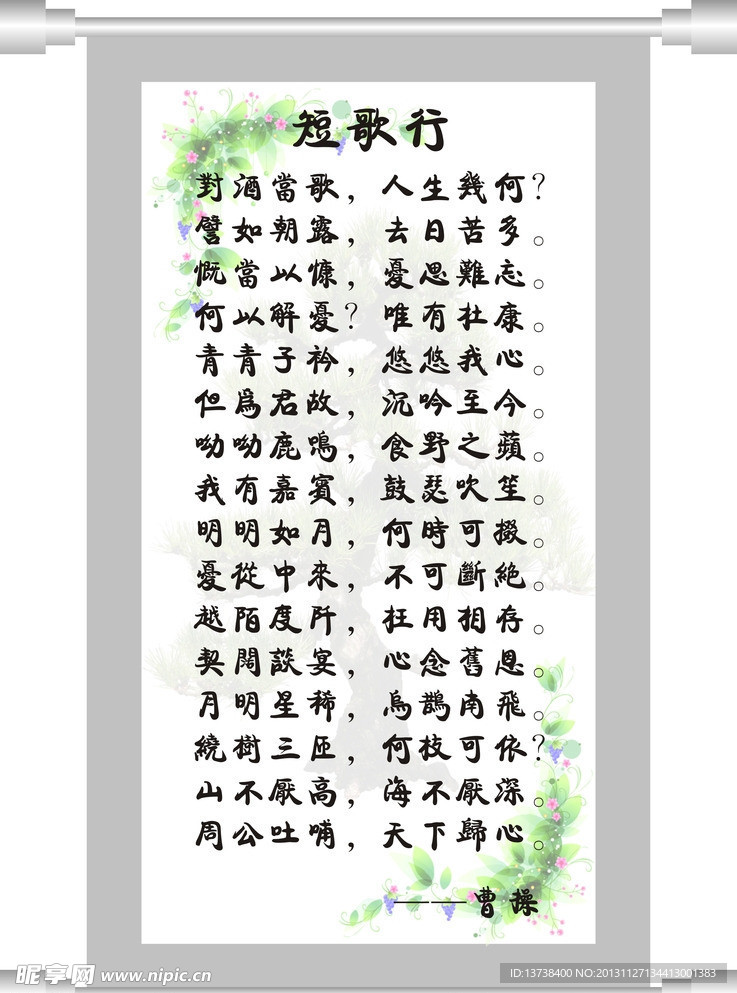 短歌行
對酒當歌，人生幾何？
譬如朝露，去日苦多。
慨當以慷，憂思難忘。
何以解憂？唯有杜康。
青青子衿，悠悠我心。
但爲君故，沉吟至今。
呦呦鹿鳴，食野之蘋。
我有嘉賓，鼓瑟吹笙。
明明如月，何時可掇。
憂從中來，不可斷絕。
越陌度阡，枉用相存。
契闊談宴，心念舊恩。
月明星稀，烏鵲南飛。
繞樹三匝，何枝可依？
山不厭高，海不厭深。
周公吐哺，天下歸心。
——曹操
昵享网 www.nipic.cn
ID:13738400 NO:20131127134413001383